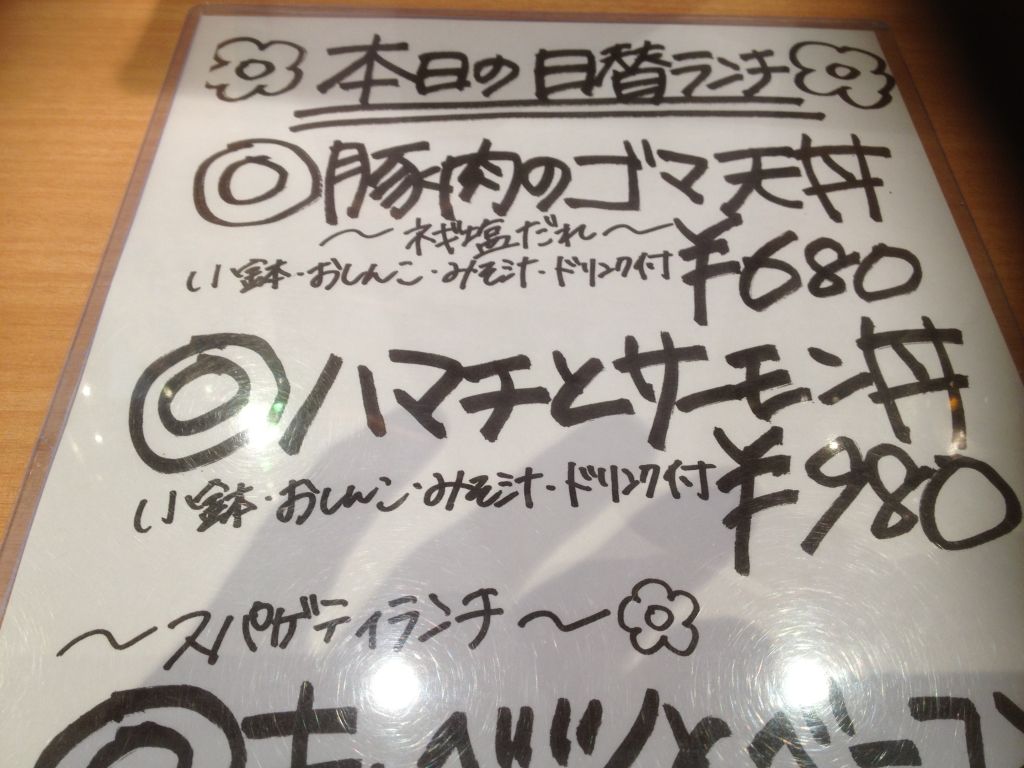 本日の日替ランチ
◎豚肉のゴマ天丼
～ネギ塩だれ～
小鉢・おしんこ・みそ汁・ドリンク付 ¥680
◎ハマチとサーモン丼
小鉢・おしんこ・みそ汁・ドリンク付 ¥980
～スパゲティランチ～
◎キャベツとベーコン